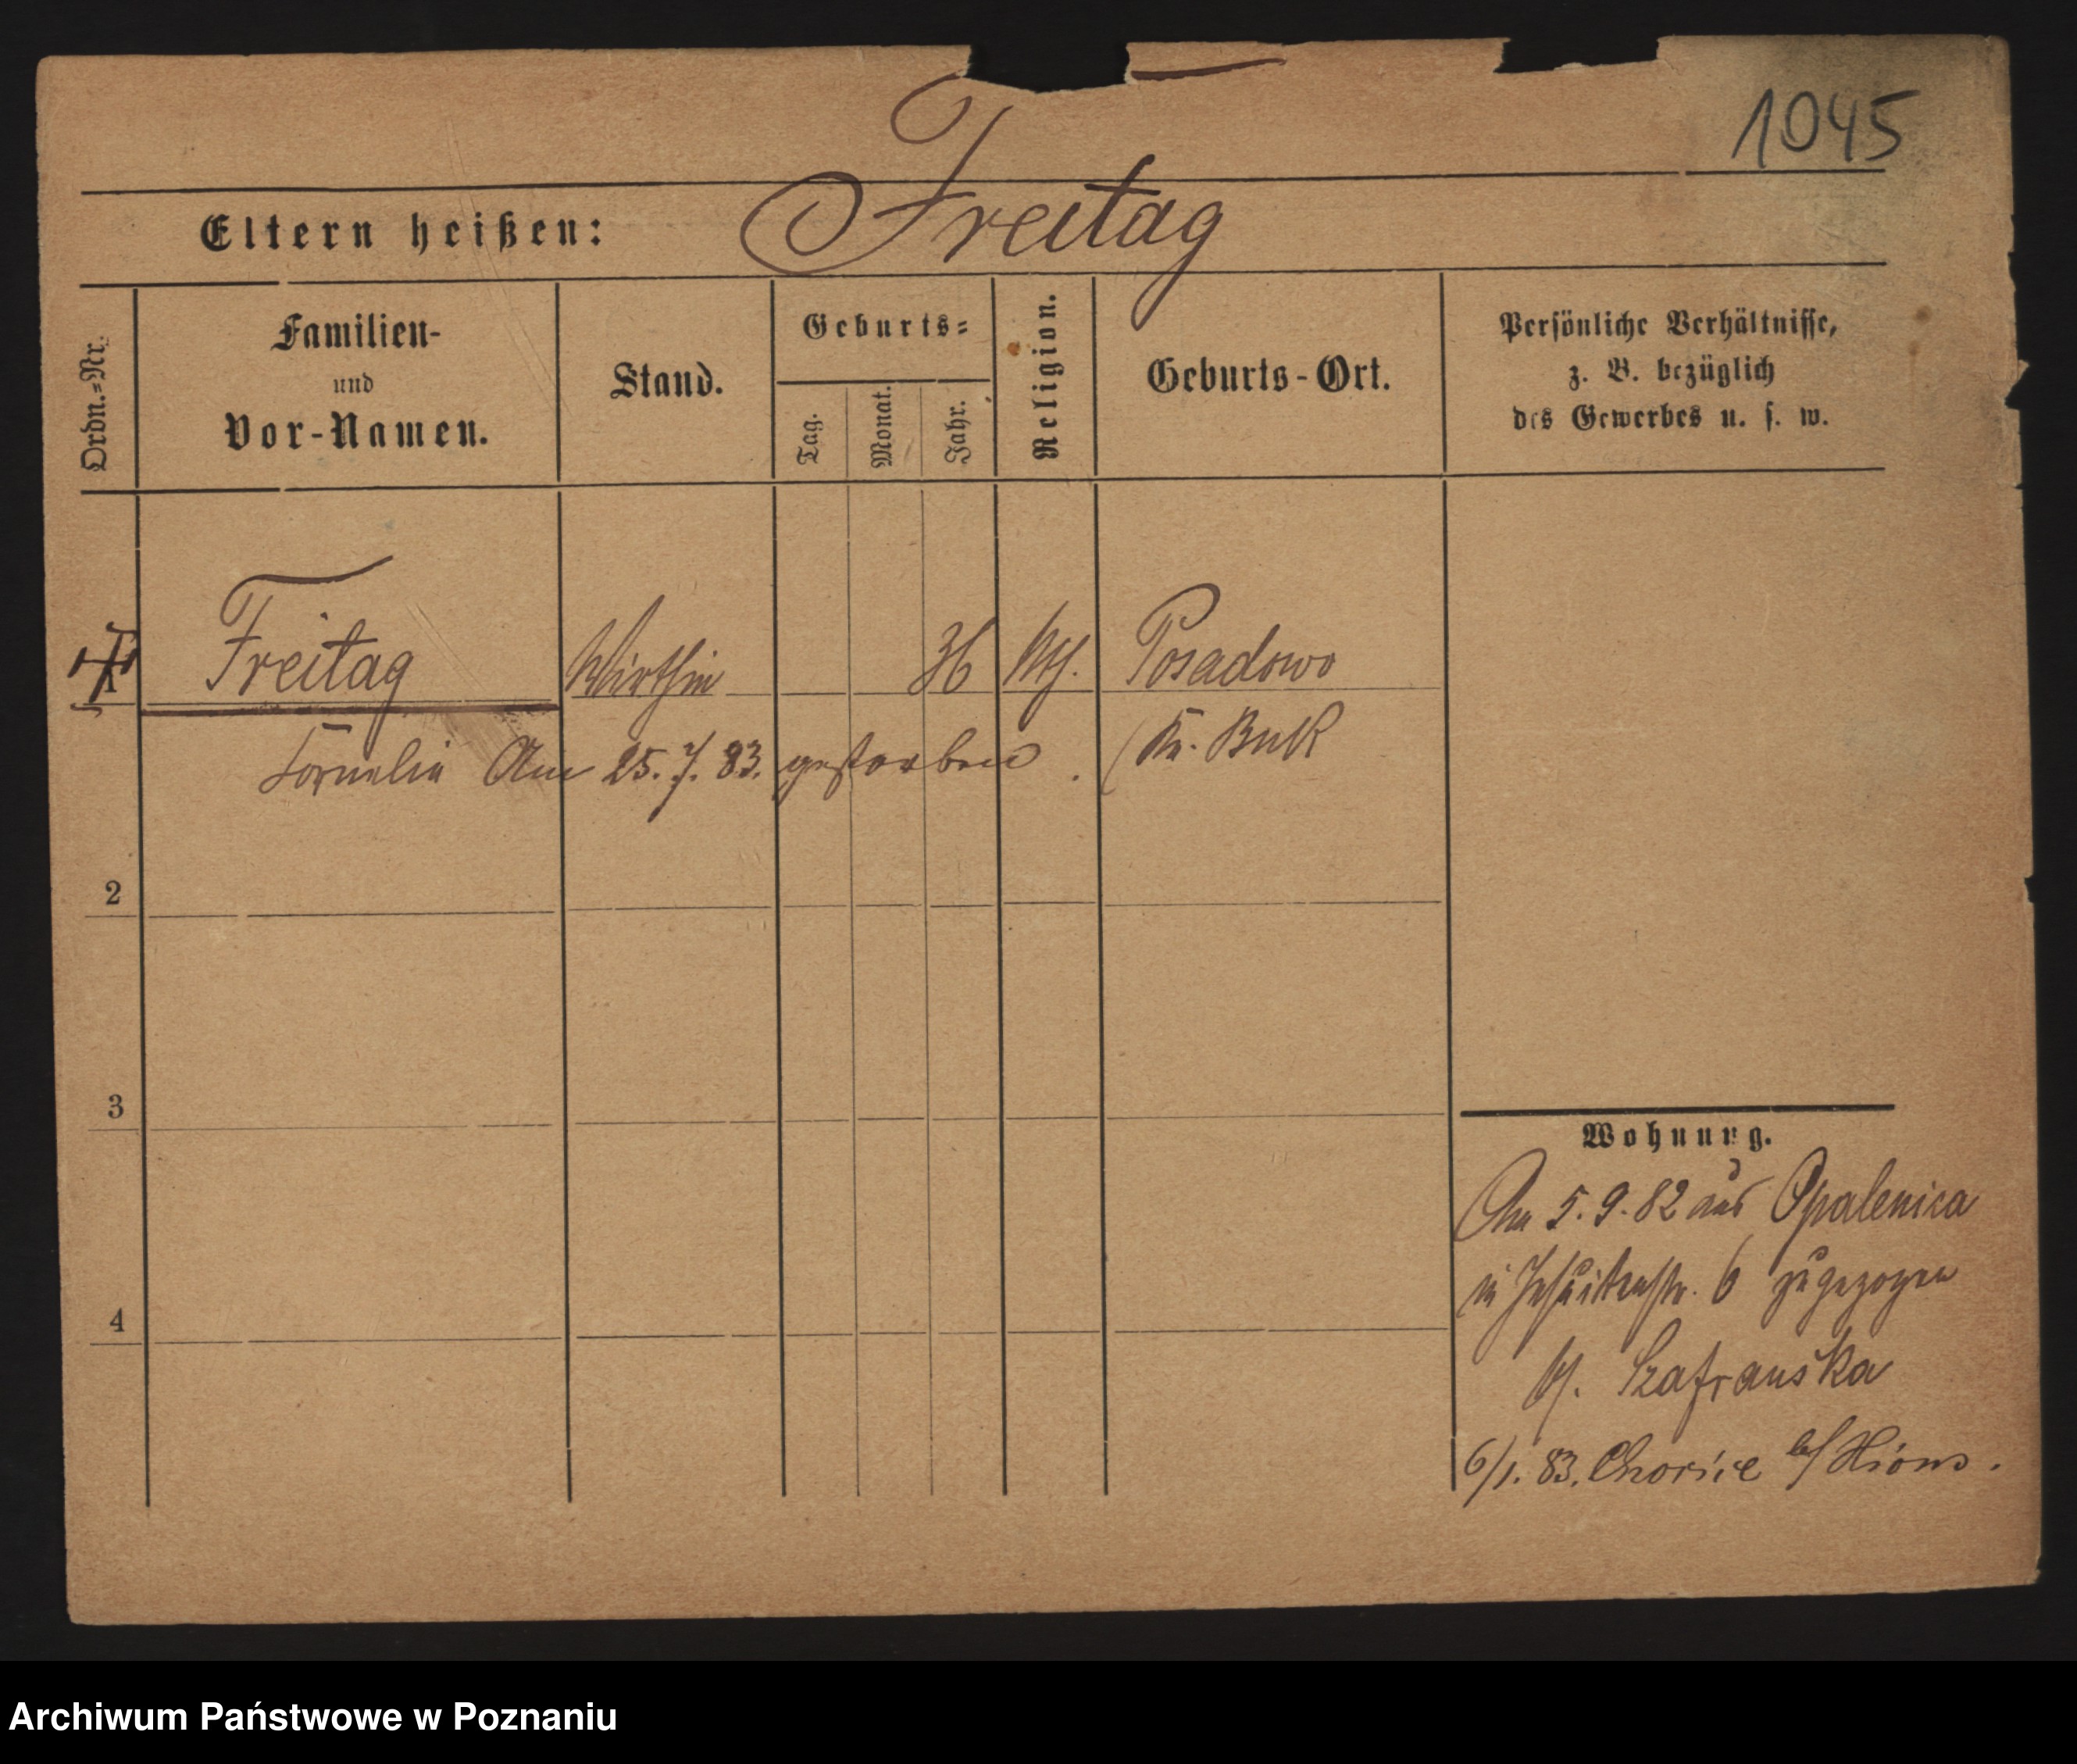 1045
Eltern heißen: Freitag
Ordn.=Nr.
Familien-
und
Vor-Namen.
Stand.
Geburts=
Tag.
Monat.
Jahr.
Religion.
Geburts-Ort.
Persönliche Verhältnisse,
z. B. bezüglich
des Gewerbes u. s. w.
1 Freitag Wirthin 36 Posadowo
Cornelia Am 25. 7. 83. gestorben. (Kr. Buk
2
3
4
Wohnung.
Am 5. 9. 82 aus Opalenica
in Jesuitenstr. 6 zugezogen
b/. Szafranska
6/1. 83. b/ Xions.
Archiwum Państwowe w Poznaniu